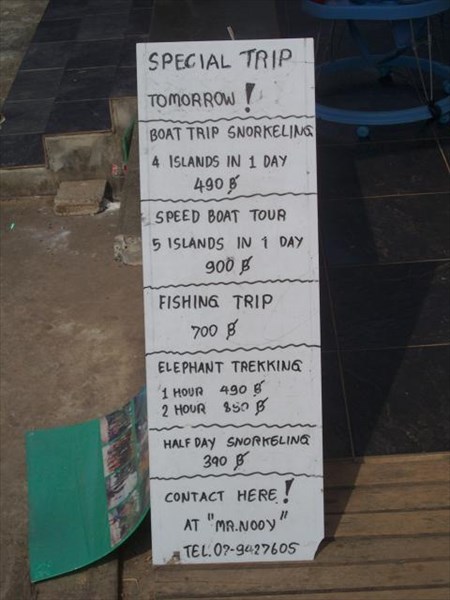 SPECIAL TRIP
TOMORROW!
BOAT TRIP SNORKELING
4 ISLANDS IN 1 DAY
490 ฿
SPEED BOAT TOUR
5 ISLANDS IN 1 DAY
900 ฿
FISHING TRIP
700 ฿
ELEPHANT TREKKING
1 HOUR 490 ฿
2 HOUR 850 ฿
HALF DAY SNORKELING
390 ฿
CONTACT HERE!
AT "MR.NOOY"
TEL. 07-9427605